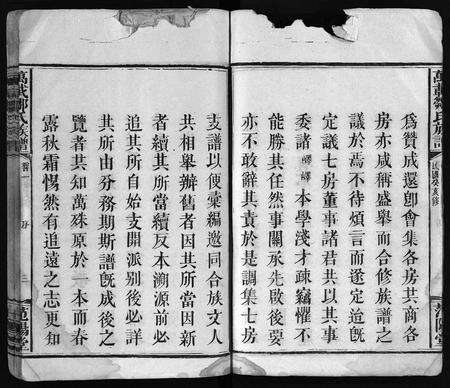 萬載鄒氏族譜
范陽堂
爲贊成還卽會集各房共商各
房亦咸稱盛舉而合修族譜之
議於焉不待煩言而遂定迨旣
定議七房董事諸君共以其事
委諸本學淺才疎竊懼不
能勝其任然事關承先啟後要
亦不敢辭其責於是調集七房
支譜以便彙編邀同合族文人
共相舉辦舊者因其所當因新
者續其所當續反本溯源前必
追其所自始支開派別後必詳
其所由分務期斯譜旣成後之
覽者共知萬殊原於一本而春
露秋霜惕然有追遠之志更知
萬載鄒氏族譜
卷一
序
三
范陽堂